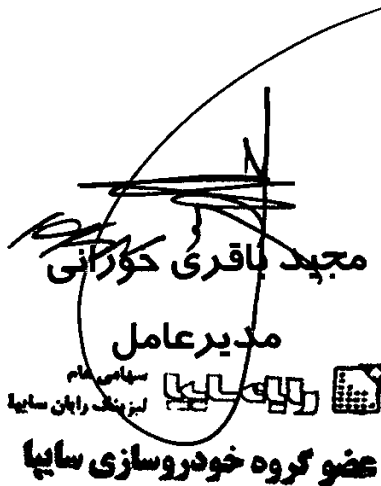 مجید باقری خورانی
مدیرعامل
سهامی عام
رایان سایپا
لیزینگ رایان سایپا
عضو گروه خودروسازی سایپا